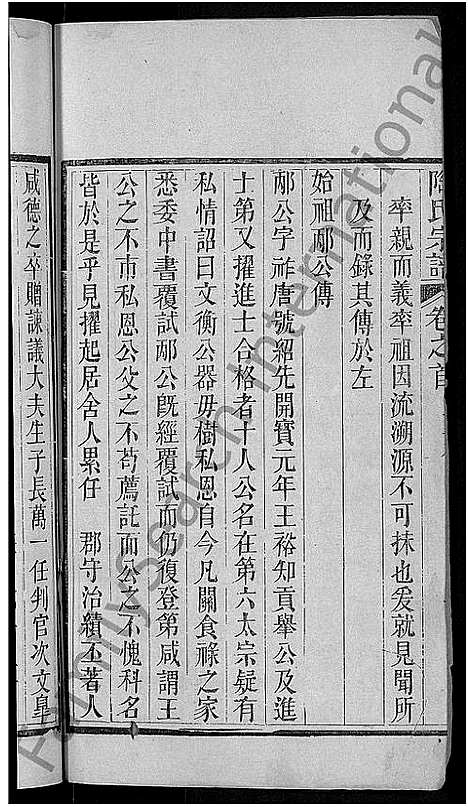 陶氏宗譜 卷之首
率親而義率祖因流溯源不可抹也爰就見聞所
及而錄其傳於左
始祖邴公傳
邴公字祚唐號紹先開寶元年王裕知貢舉公及進
士第又擢進士合格者十人公名在第六太宗疑有
私情詔曰文衡公器毋樹私恩自今凡關食祿之家
悉委中書覆試邴公旣經覆試而仍復登第咸謂王
公之不市私恩公父之不苟薦託而公之不愧科名
皆於是乎見擢起居舍人累任 郡守治績丕著人
咸德之卒贈諫議大夫生子長萬一任判官次文皐
Familysearch International